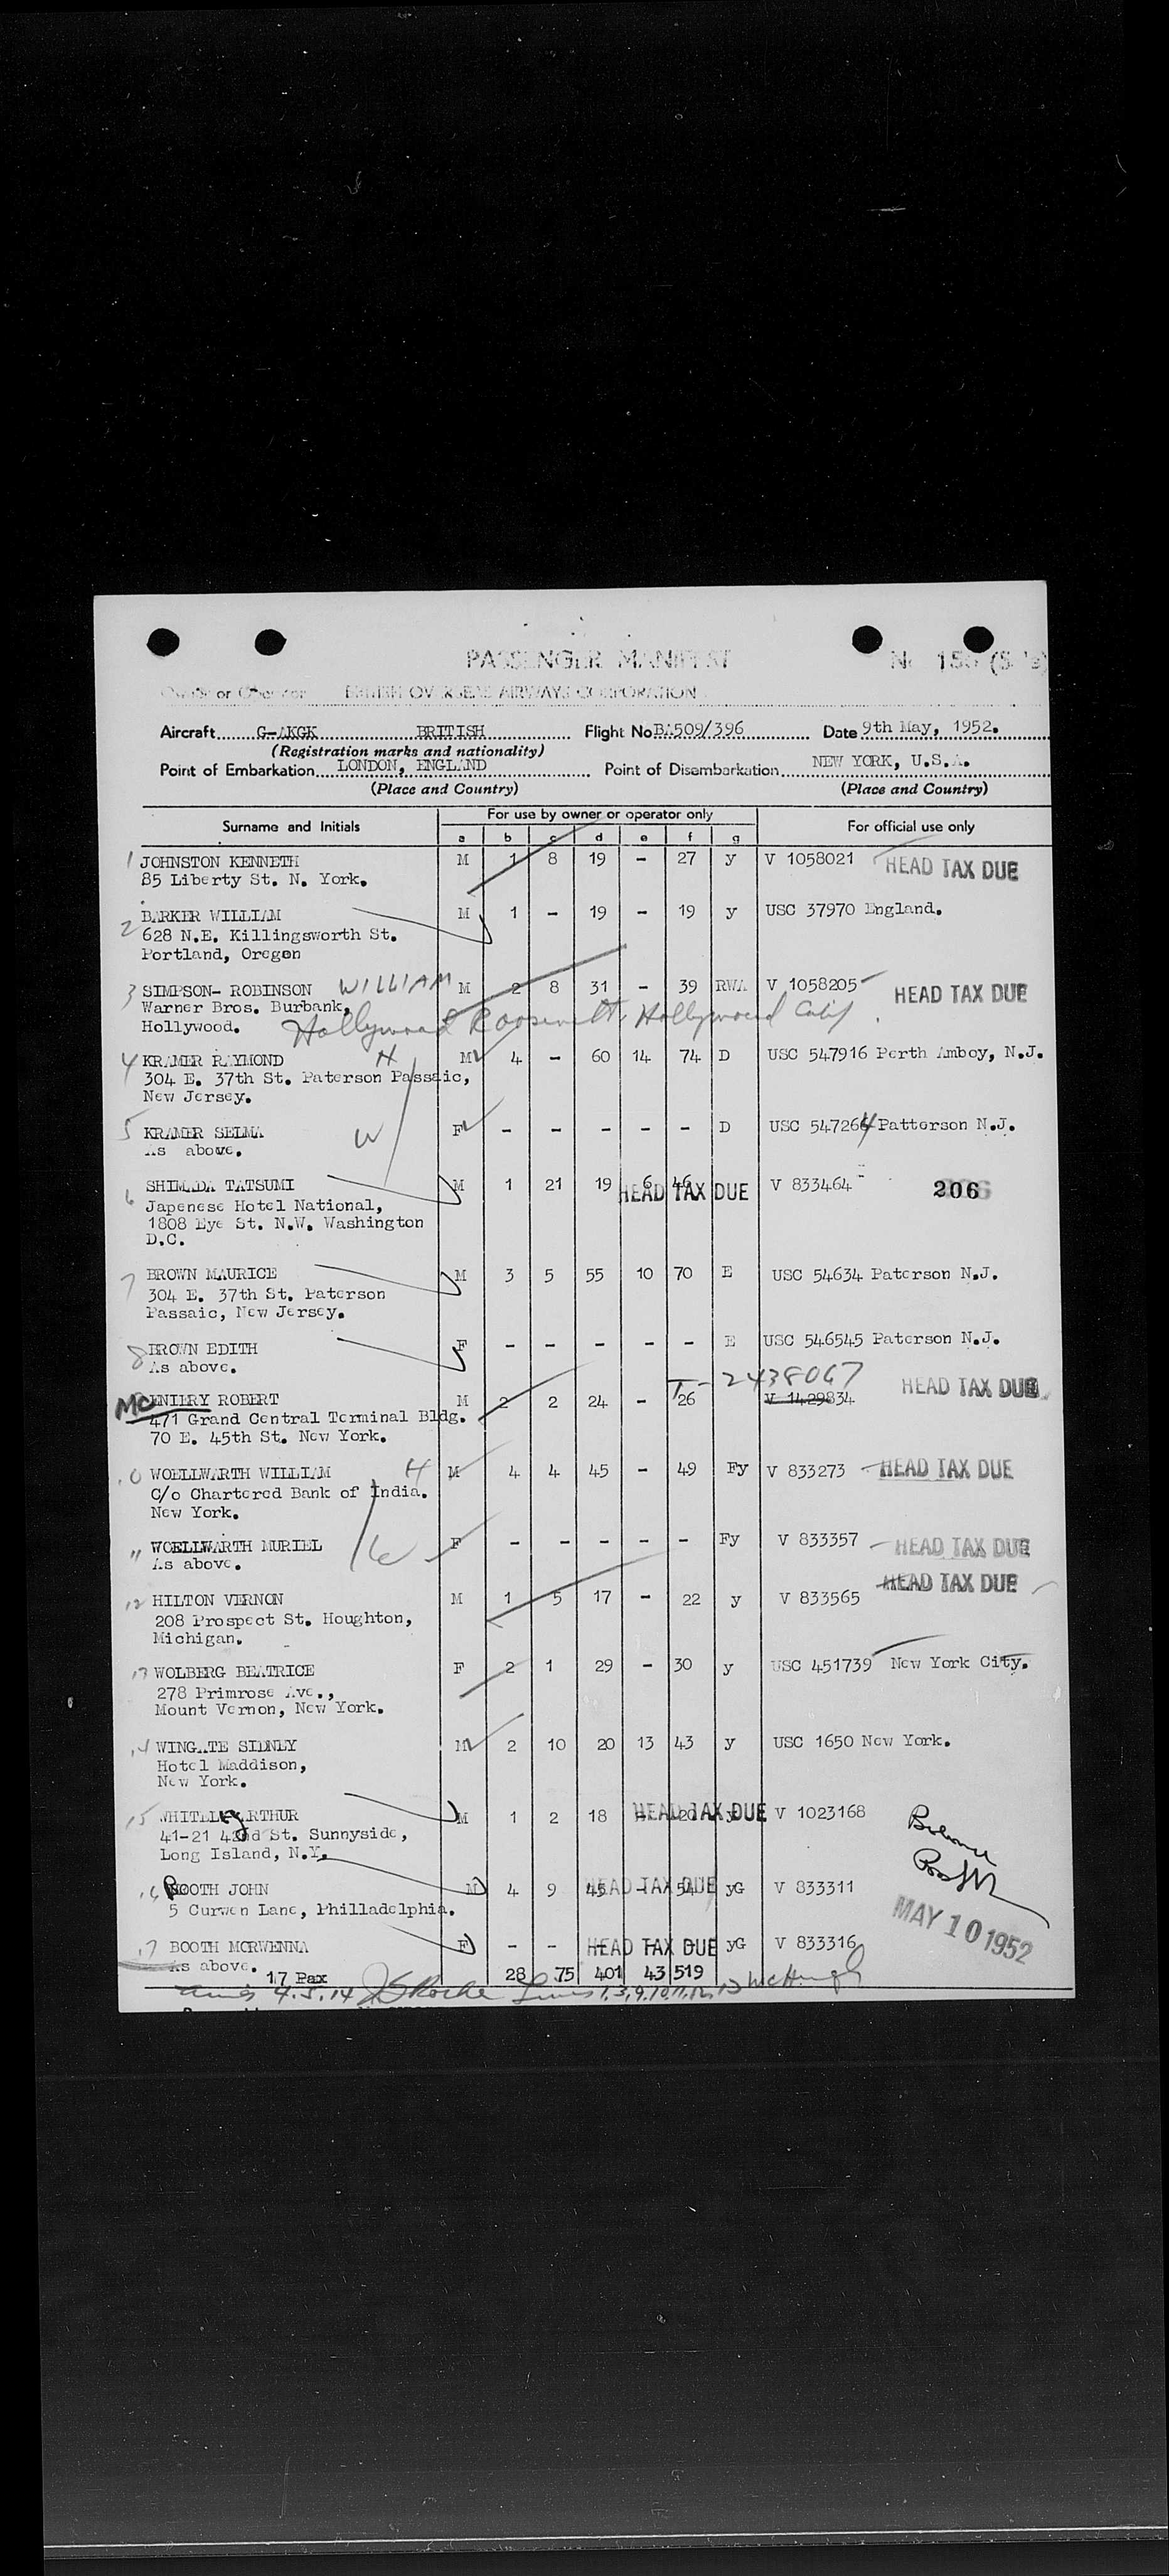 PASSENGER MANIFEST No 155
Owner or Operator BRITISH OVERSEAS AIRWAYS CORPORATION
Aircraft G-AKGK BRITISH Flight No BA509/396 Date 9th May, 1952.
(Registration marks and nationality)
Point of Embarkation LONDON, ENGLAND Point of Disembarkation NEW YORK, U.S.A.
(Place and Country) (Place and Country)
Surname and Initials For use by owner or operator only For official use only
a b c d e f g
1 JOHNSTON KENNETH M 1 8 19 - 27 y V 1058021 HEAD TAX DUE
85 Liberty St. N. York.
2 BARKER WILLIAM M 1 - 19 - 19 y USC 37970 England.
628 N.E. Killingsworth St.
Portland, Oregon
3 SIMPSON- ROBINSON WILLIAM M 2 8 31 - 39 RWA V 1058205 HEAD TAX DUE
Warner Bros. Burbank,
Hollywood. Hollywood Roosevelt, Hollywood Calif.
4 KRAMER RAYMOND H M 4 - 60 14 74 D USC 547916 Perth Amboy, N.J.
304 E. 37th St. Paterson Passaic,
New Jersey.
5 KRAMER SELMA W F - - - - - D USC 547264 Patterson N.J.
As above.
6 SHIMADA TATSUMI M 1 21 19 6 46 HEAD TAX DUE V 833464 206
Japenese Hotel National,
1808 Eye St. N.W. Washington
D.C.
7 BROWN MAURICE M 3 5 55 10 70 E USC 54634 Paterson N.J.
304 E. 37th St. Paterson
Passaic, New Jersey.
8 BROWN EDITH F - - - - - E USC 546545 Paterson N.J.
As above.
T-2438067
McENIERY ROBERT M 2 2 24 - 26 V 1429834 HEAD TAX DUE
471 Grand Central Terminal Bldg.
70 E. 45th St. New York.
10 WOELLWARTH WILLIAM H M 4 4 45 - 49 Fy V 833273 HEAD TAX DUE
C/o Chartered Bank of India.
New York.
11 WOELLWARTH MURIEL W F - - - - - Fy V 833357 HEAD TAX DUE
As above.
12 HILTON VERNON M 1 5 17 - 22 y V 833565 HEAD TAX DUE
208 Prospect St. Houghton,
Michigan.
13 WOLBERG BEATRICE F 2 1 29 - 30 y USC 451739 New York City.
278 Primrose Ave.,
Mount Vernon, New York.
14 WINGATE SIDNEY M 2 10 20 13 43 y USC 1650 New York.
Hotel Maddison,
New York.
15 WHITELEY ARTHUR M 1 2 18 - 20 y HEAD TAX DUE V 1023168
41-21 42nd St. Sunnyside,
Long Island, N.Y.
16 BOOTH JOHN M 4 9 45 - 54 HEAD TAX DUE yG V 833311
5 Curwen Lane, Philladelphia.
MAY 10 1952
17 BOOTH MORWENNA F - - - - - HEAD TAX DUE yG V 833316
As above.
17 Pax 28 75 401 43 519
Lines 4.5.14 Lines 1,3,9,10,11,12,13 McHugh